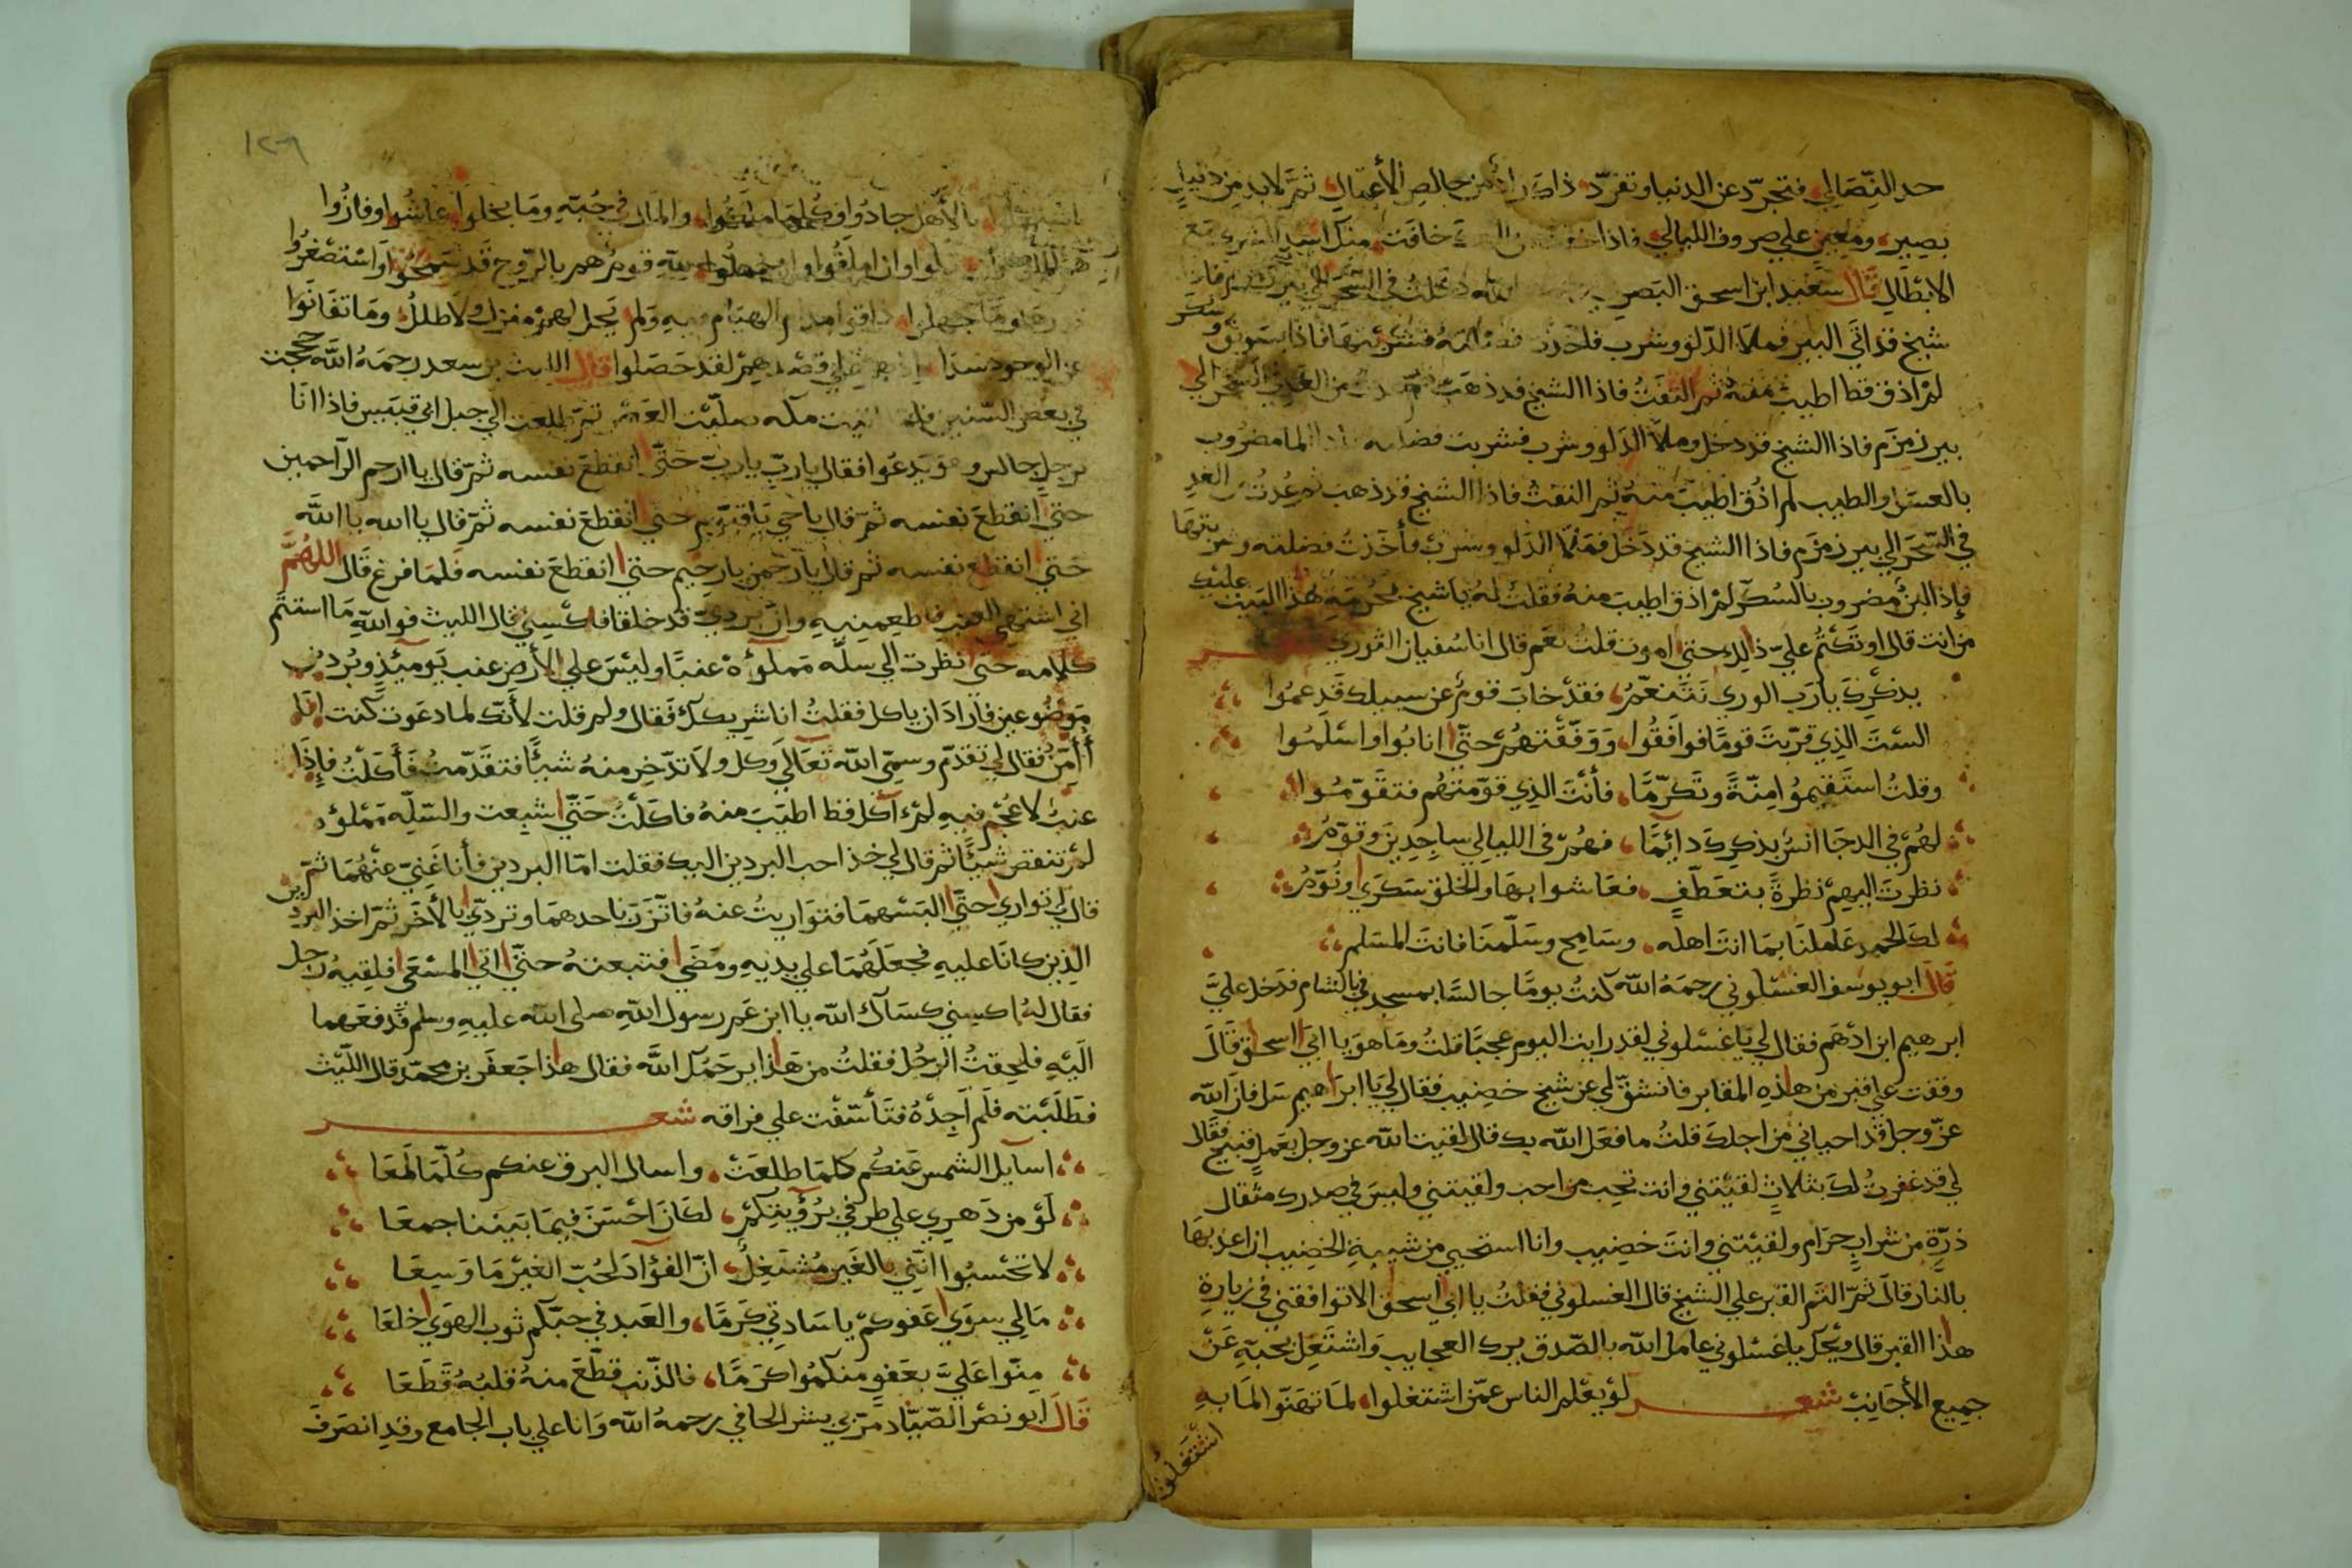 حد النصال فتجرد عن الدنيا وتفرد ذاك رأس خالص الأعمال ثم لابد من دليل
بصير ومعين علي صروف الليالي فاذا خافت منك اسد
الابطال قال سعيد ابن اسحق البصري دخلت في السحر الي بير زمزم فاذا
شيخ قد اتي البير فملا الدلو وشرب فاخذت فضلته فشربتها فاذا سويق وسكر
لم اذق قط اطيب منه ثم التفت فاذا الشيخ قد ذهب ثم عدت من الغد في السحر الي
بير زمزم فاذا الشيخ قد دخل وملا الدلو وشرب فشربت فضلته الما مضروب
بالعسل والطيب لم اذق اطيب منه ثم التفت فاذا الشيخ قد ذهب ثم عدت من الغد
في السحر الي بير زمزم فاذا الشيخ قد دخل فملا الدلو وشرب فأخذت فضلته وشربتها
فإذا لبن مضروب بالسكر لم اذق اطيب منه فقلت له يا شيخ بحرمة هذا البيت عليك
من انت قال او تكتم علي ذلك حتي اموت قلت نعم قال انا سفيان الثوري شعر
بذكرك يا رب الوري نتنعم، فقد خاب قوم عن سبيلك قد عموا
الست الذي قربت قوما فوافقوا، ووفقتهم حتي انابوا واسلموا
وقلت استقيموا منة وتكرما، فأنت الذي قومتهم فتقوموا
لهم في الدجا انس بذكرك دائما، فهم في الليالي ساجدين وقوم
نظرت اليهم نظرة بتعطف، فعاشوا بها والخلق سكري ونوم
لك الحمد عاملنا بما انت اهله، وسامح وسلمنا فانت المسلم
قال ابو يوسف الغسلوني رحمه الله كنت يوما جالسا بمسجد في بالشام فدخل علي
ابرهيم ابن ادهم فقال لي يا غسلوني لقد رايت اليوم عجبا قلت وما هو يا ابي اسحق قال
وقفت علي قبر من هذه المقابر فانشق لي عن شيخ خضيب فقال لي يا ابراهيم سل فان الله
عز وجل قد احياني من اجلك قلت ما فعل الله بك قال لقيت الله عز وجل بعمل قبيح فقال
لي قد غفرت لك بثلاث لقيتني وانت تحب من احب ولقيتني وليس في صدرك مثقال
ذرة من شراب حرام ولقيتني وانت خضيب وانا استحيي من شيبة الخضيب ان اعذبها
بالنار قال ثم التئم القبر علي الشيخ قال الغسلوني فقلت يا ابي اسحق الا توافقني في زيارة
هذا القبر قال ويحك يا غسلوني عامل الله بالصدق يرك العجايب واشتغل بحبه عن
جميع الأجانب شعر لو يعلم الناس عمن اشتغلوا، لما تهنوا لما به
اشتغلوا
١٢٩
بالأهل جادوا وكلما منعوا، والمال في جبه وما بخلوا عاشوا وفازوا
وان املقوا وان جهلوا، لله قوم هم بالروح قد سمحوا واستصغروا
وما جهلوا ذاقوا مدام الهيام فيه ولم يحل لهم منزل ولا طلل وما تفانوا
عن الوجود سدا الي قصدهم لقد حصلوا قال الليث بن سعد رحمه الله حججت
في بعض السنين فلما اتيت مكه صليت العصر ثم طلعت الي جبل ابي قبيس فاذا انا
برجل جالس وهو يدعوا فقال يا رب يا رب حتي انقطع نفسه ثم قال يا ارحم الراحمين
حتي انقطع نفسه ثم قال يا حي يا قيوم حتي انقطع نفسه ثم قال يا الله يا الله
حتي انقطع نفسه ثم قال يا رحمن يا رحيم حتي انقطع نفسه فلما فرغ قال اللهم
اني اشتهي العنب فاطعمنيه وان بردي قد خلقا فاكسني قال الليث فوالله ما استتم
كلامه حتي نظرت الي سله مملوءة عنبا وليس علي الأرض عنب يومئذ وبردين
موضوعين فاراد ان ياكل فقلت انا شريكك فقال ولم قلت لأنك لما دعوت كنت انا
أأمن فقال لي تقدم وسمي الله تعالي وكل ولا تدخر منه شيئا فتقدمت فأكلت فإذا
عنب لا عجم فيه لم أكل قط اطيب منه فاكلت حتي شبعت والسله مملؤه
لم تنقص شيئا ثم قال لي خذ احب البردين اليك فقلت اما البردين فأنا غني عنهما ثم
قال لي تواري حتي البسهما فتواريت عنه فاتزر باحدهما وتردي بالأخر ثم اخذ البردين
الذين كانا عليه فجعلهما علي يديه ومضي فتبعته حتي اتي المسعي فلقيه رجل
فقال له اكسني كساك الله يا ابن عم رسول الله صلى الله عليه وسلم فدفعهما
اليه فلحقت الرجل فقلت من هذا يرحمك الله فقال هذا جعفر بن محمد قال الليث
فطلبته فلم اجده فتأسفت علي فراقه شعر
اسايل الشمس عنكم كلما طلعت، واسال البرق عنكم كلما لمعا
لو من دهري علي طرفي برؤيتكم، لكان احسن فيما بيننا جمعا
لا تحسبوا انني بالغير مشتغل، ان الفؤاد لحب الغير ما وسعا
مالي سوي عفوكم يا سادتي كرما، والعبد في حبكم ثوب الهوي خلعا
منوا علي بعفو منكموا كرما، فالذنب قطع منه قلبه قطعا
قال ابو نصر الصياد مر بي بشر الحافي رحمه الله وانا علي باب الجامع وقد انصرف